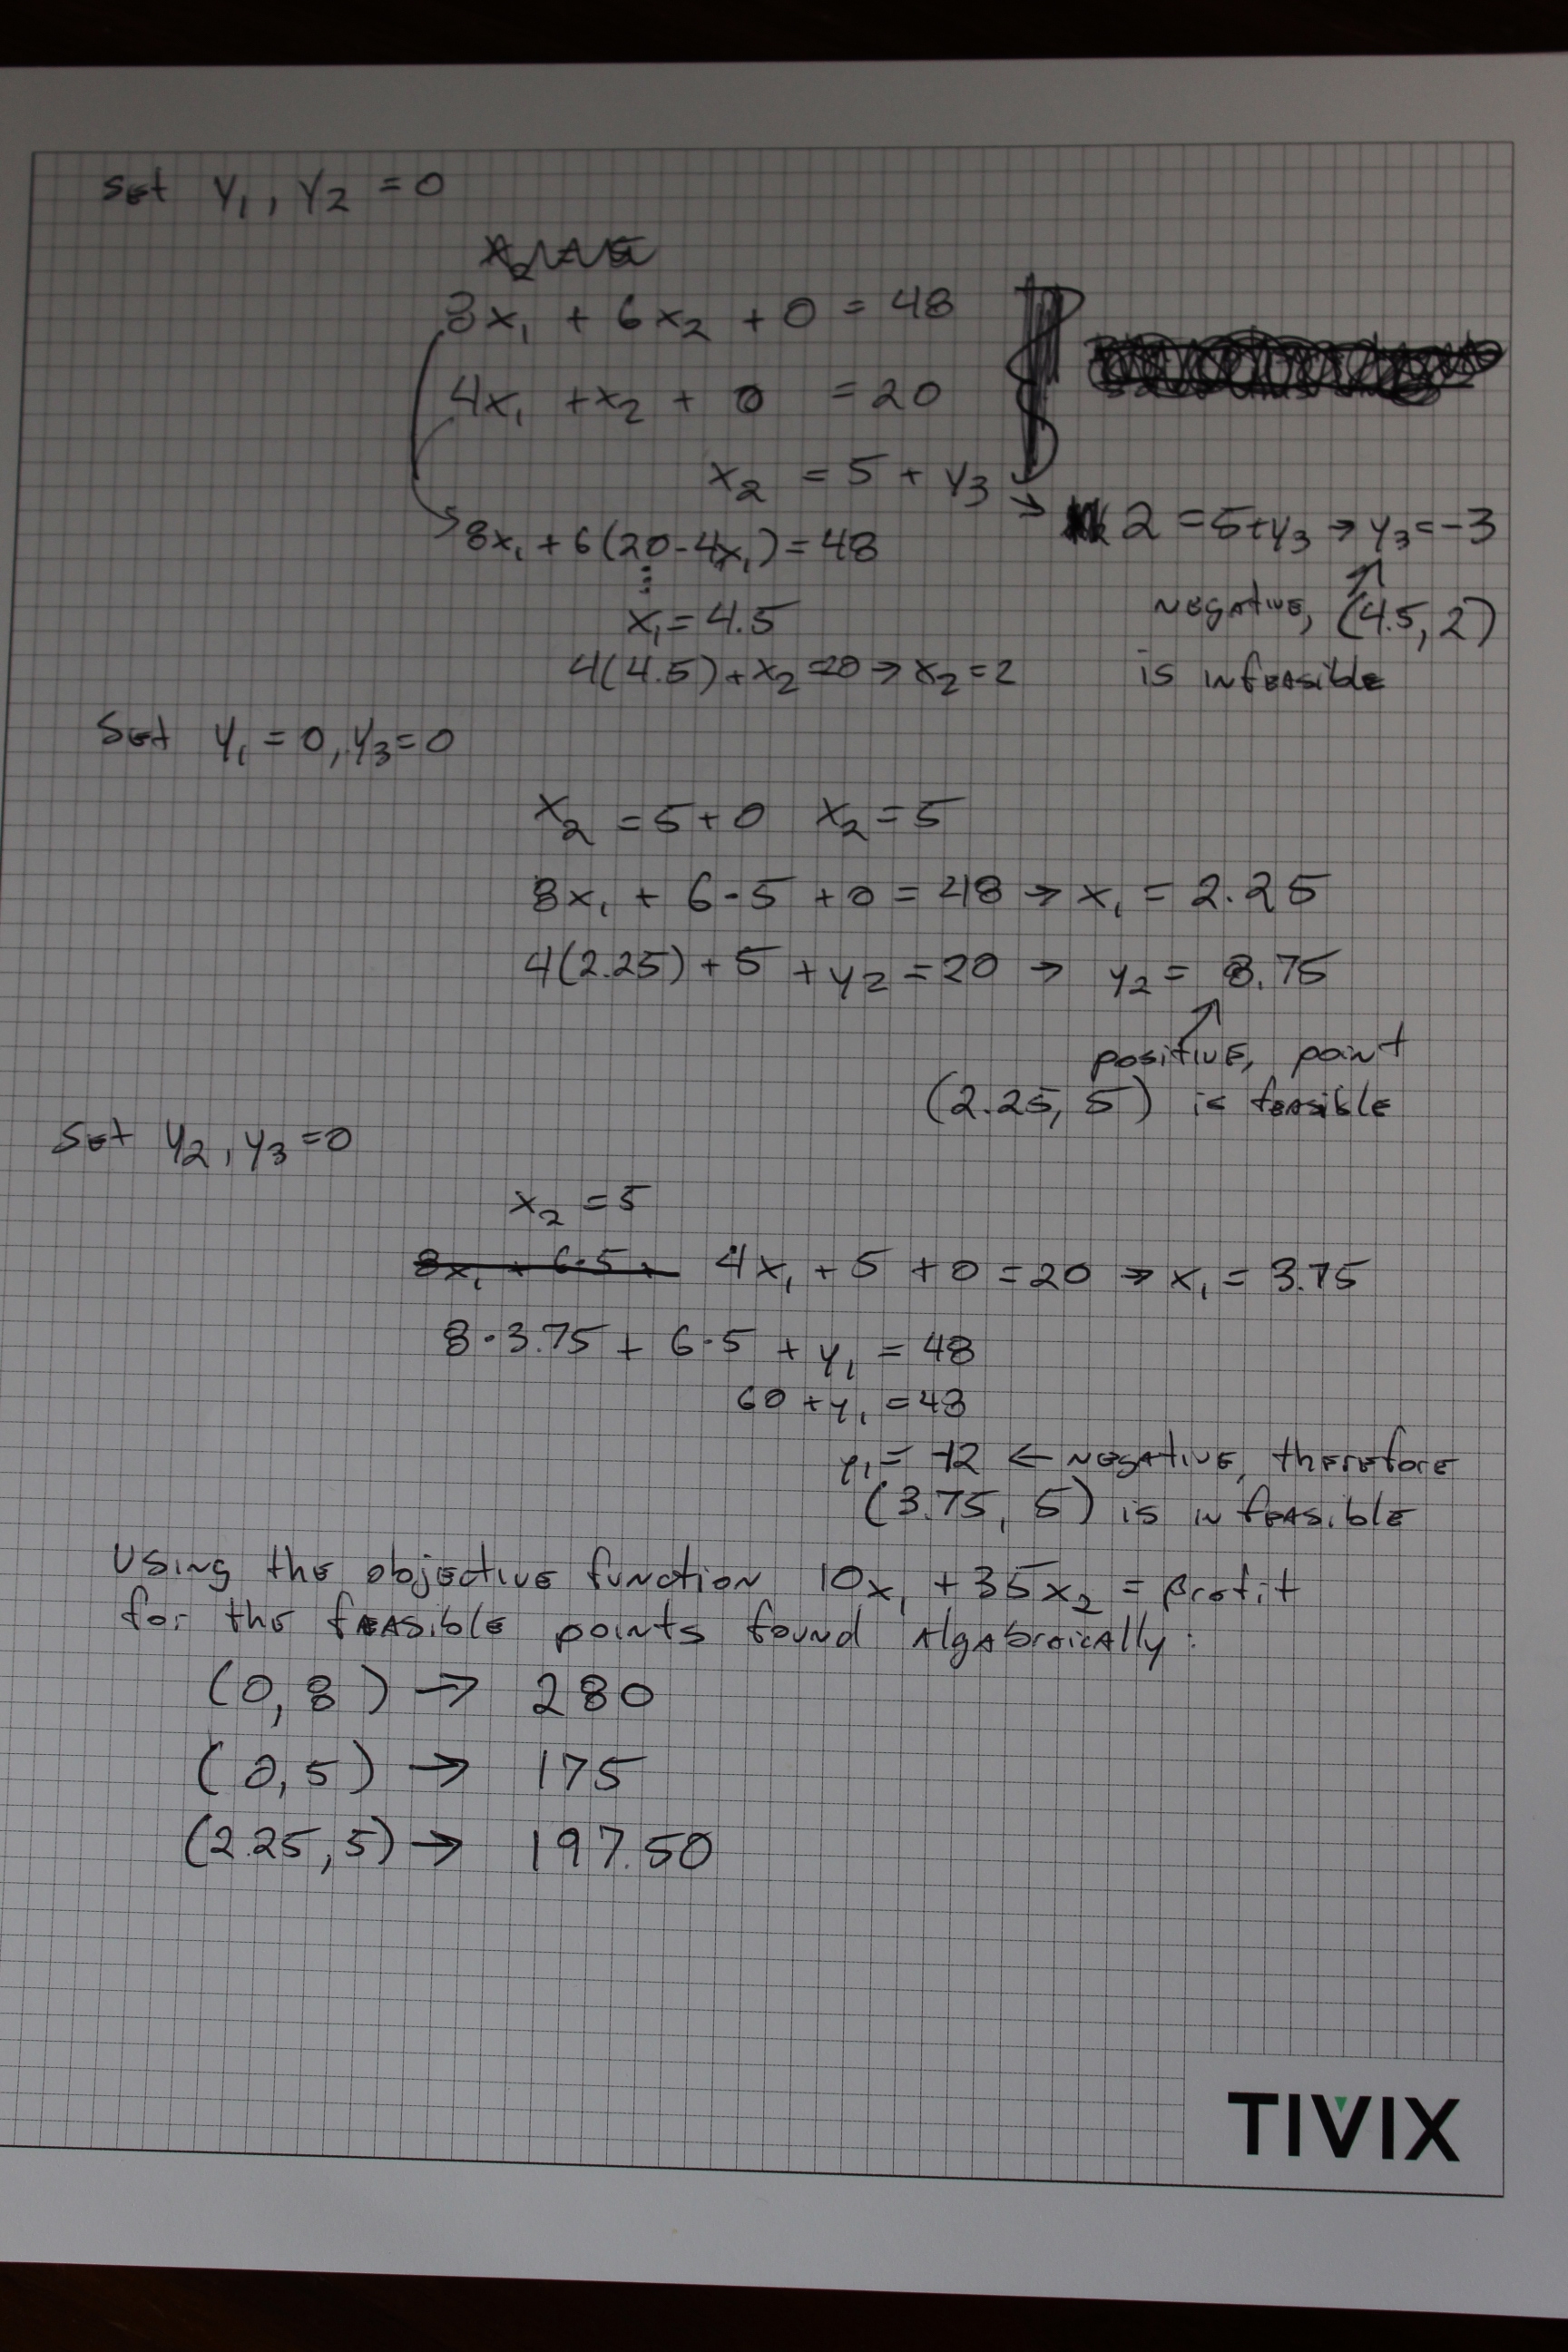 Set y₁, y₂ = 0
8x₁ + 6x₂ + 0 = 48
4x₁ + x₂ + 0 = 20
x₂ = 5 + y₃ → 2 = 5 + y₃ → y₃ = -3
8x₁ + 6(20 - 4x₁) = 48
⋮
negative, (4.5, 2)
x₁ = 4.5
is infeasible
4(4.5) + x₂ = 20 → x₂ = 2
Set y₁ = 0, y₃ = 0
x₂ = 5 + 0 x₂ = 5
8x₁ + 6·5 + 0 = 48 → x₁ = 2.25
4(2.25) + 5 + y₂ = 20 → y₂ = 8.75
positive, point
(2.25, 5) is feasible
Set y₂, y₃ = 0
x₂ = 5
8x₁ + 6·5 + 4x₁ + 5 + 0 = 20 → x₁ = 3.75
8·3.75 + 6·5 + y₁ = 48
60 + y₁ = 48
y₁ = -12 ← negative, therefore
(3.75, 5) is infeasible
Using the objective function 10x₁ + 35x₂ = profit
for the feasible points found algabraically:
(0, 8) → 280
(0, 5) → 175
(2.25, 5) → 197.50
TIVIX